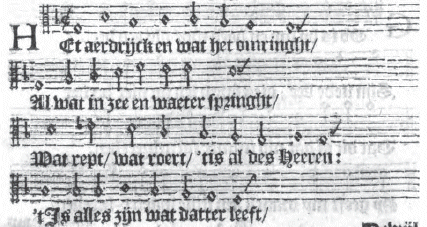 HEt aerdrijck en wat het omringht/
Al wat in zee en waeter springht/
Wat rept/ wat roert/ 'tis al des Heeren:
't Is alles zijn wat datter leeft/